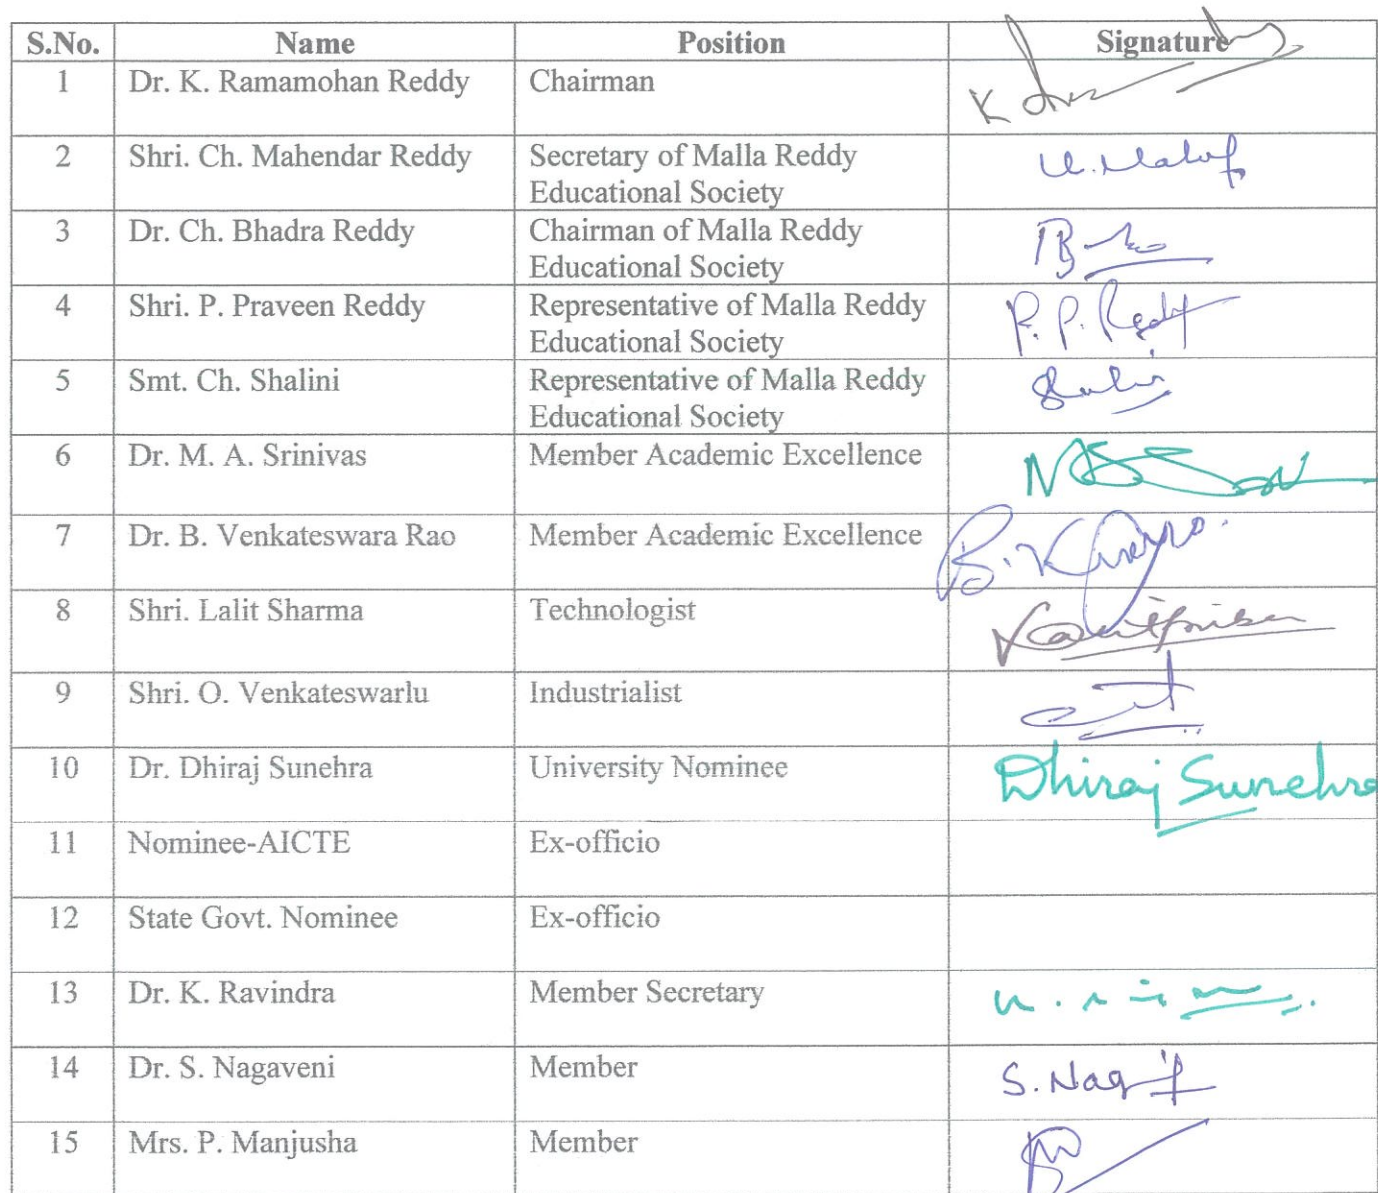 S.No. Name Position Signature
1 Dr. K. Ramamohan Reddy Chairman
2 Shri. Ch. Mahendar Reddy Secretary of Malla Reddy
Educational Society
3 Dr. Ch. Bhadra Reddy Chairman of Malla Reddy
Educational Society
4 Shri. P. Praveen Reddy Representative of Malla Reddy
Educational Society P. P. Reddy
5 Smt. Ch. Shalini Representative of Malla Reddy
Educational Society
6 Dr. M. A. Srinivas Member Academic Excellence
7 Dr. B. Venkateswara Rao Member Academic Excellence
8 Shri. Lalit Sharma Technologist
9 Shri. O. Venkateswarlu Industrialist
10 Dr. Dhiraj Sunehra University Nominee Dhiraj Sunehra
11 Nominee-AICTE Ex-officio
12 State Govt. Nominee Ex-officio
13 Dr. K. Ravindra Member Secretary
14 Dr. S. Nagaveni Member
15 Mrs. P. Manjusha Member